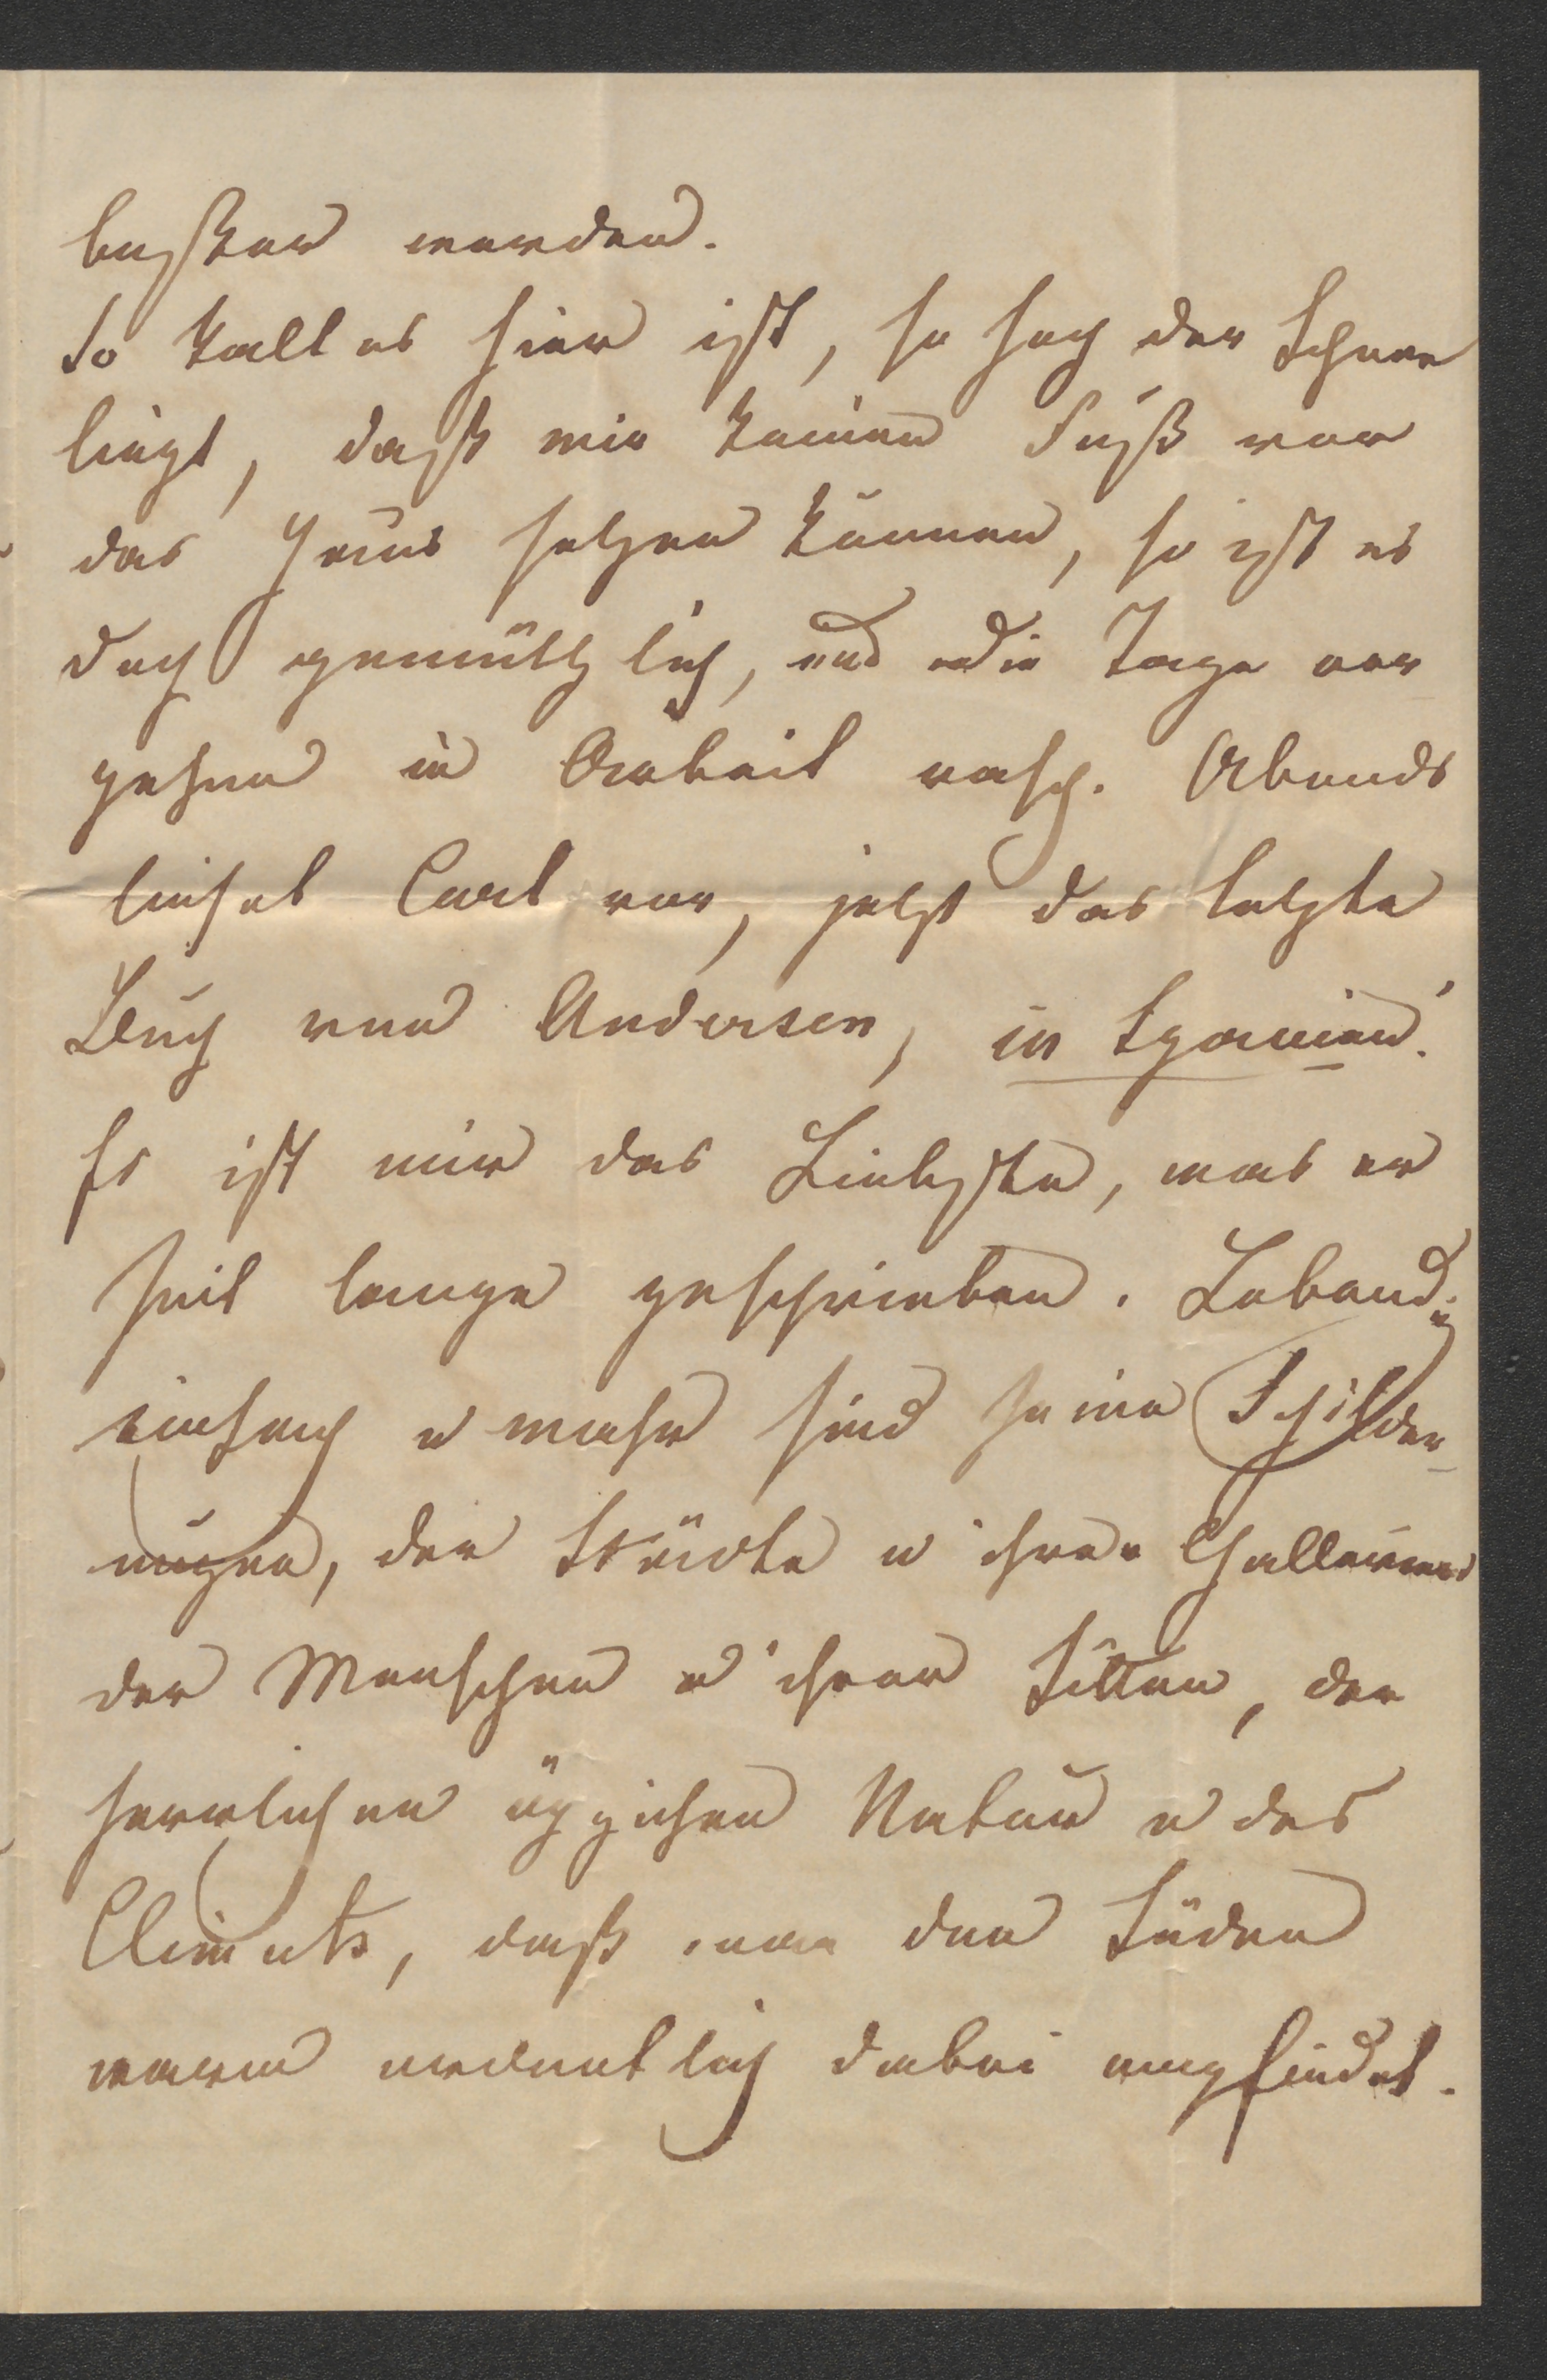 besser werden.
So kalt es hier ist, so hoch der Schnee
liegt, daß wir keinen Fuß vor
das Haus setzen können, so ist es
doch gemüthlich, und die Tage ver
gehen in Arbeit rasch. Abends
liest Carl vor, jetzt das letzte
Buch von Andersen, in Spanien.
Es ist mir das Liebste, was er
seit lange geschrieben. Lebendig
einfach u wahr sind seine Schilder
ungen, der Städte u ihrer
der Menschen u ihrer Sitten, der
herrlichen üppichen Natur u des
Climats, daß man den Süden
warm ordentlich dabei empfindet.